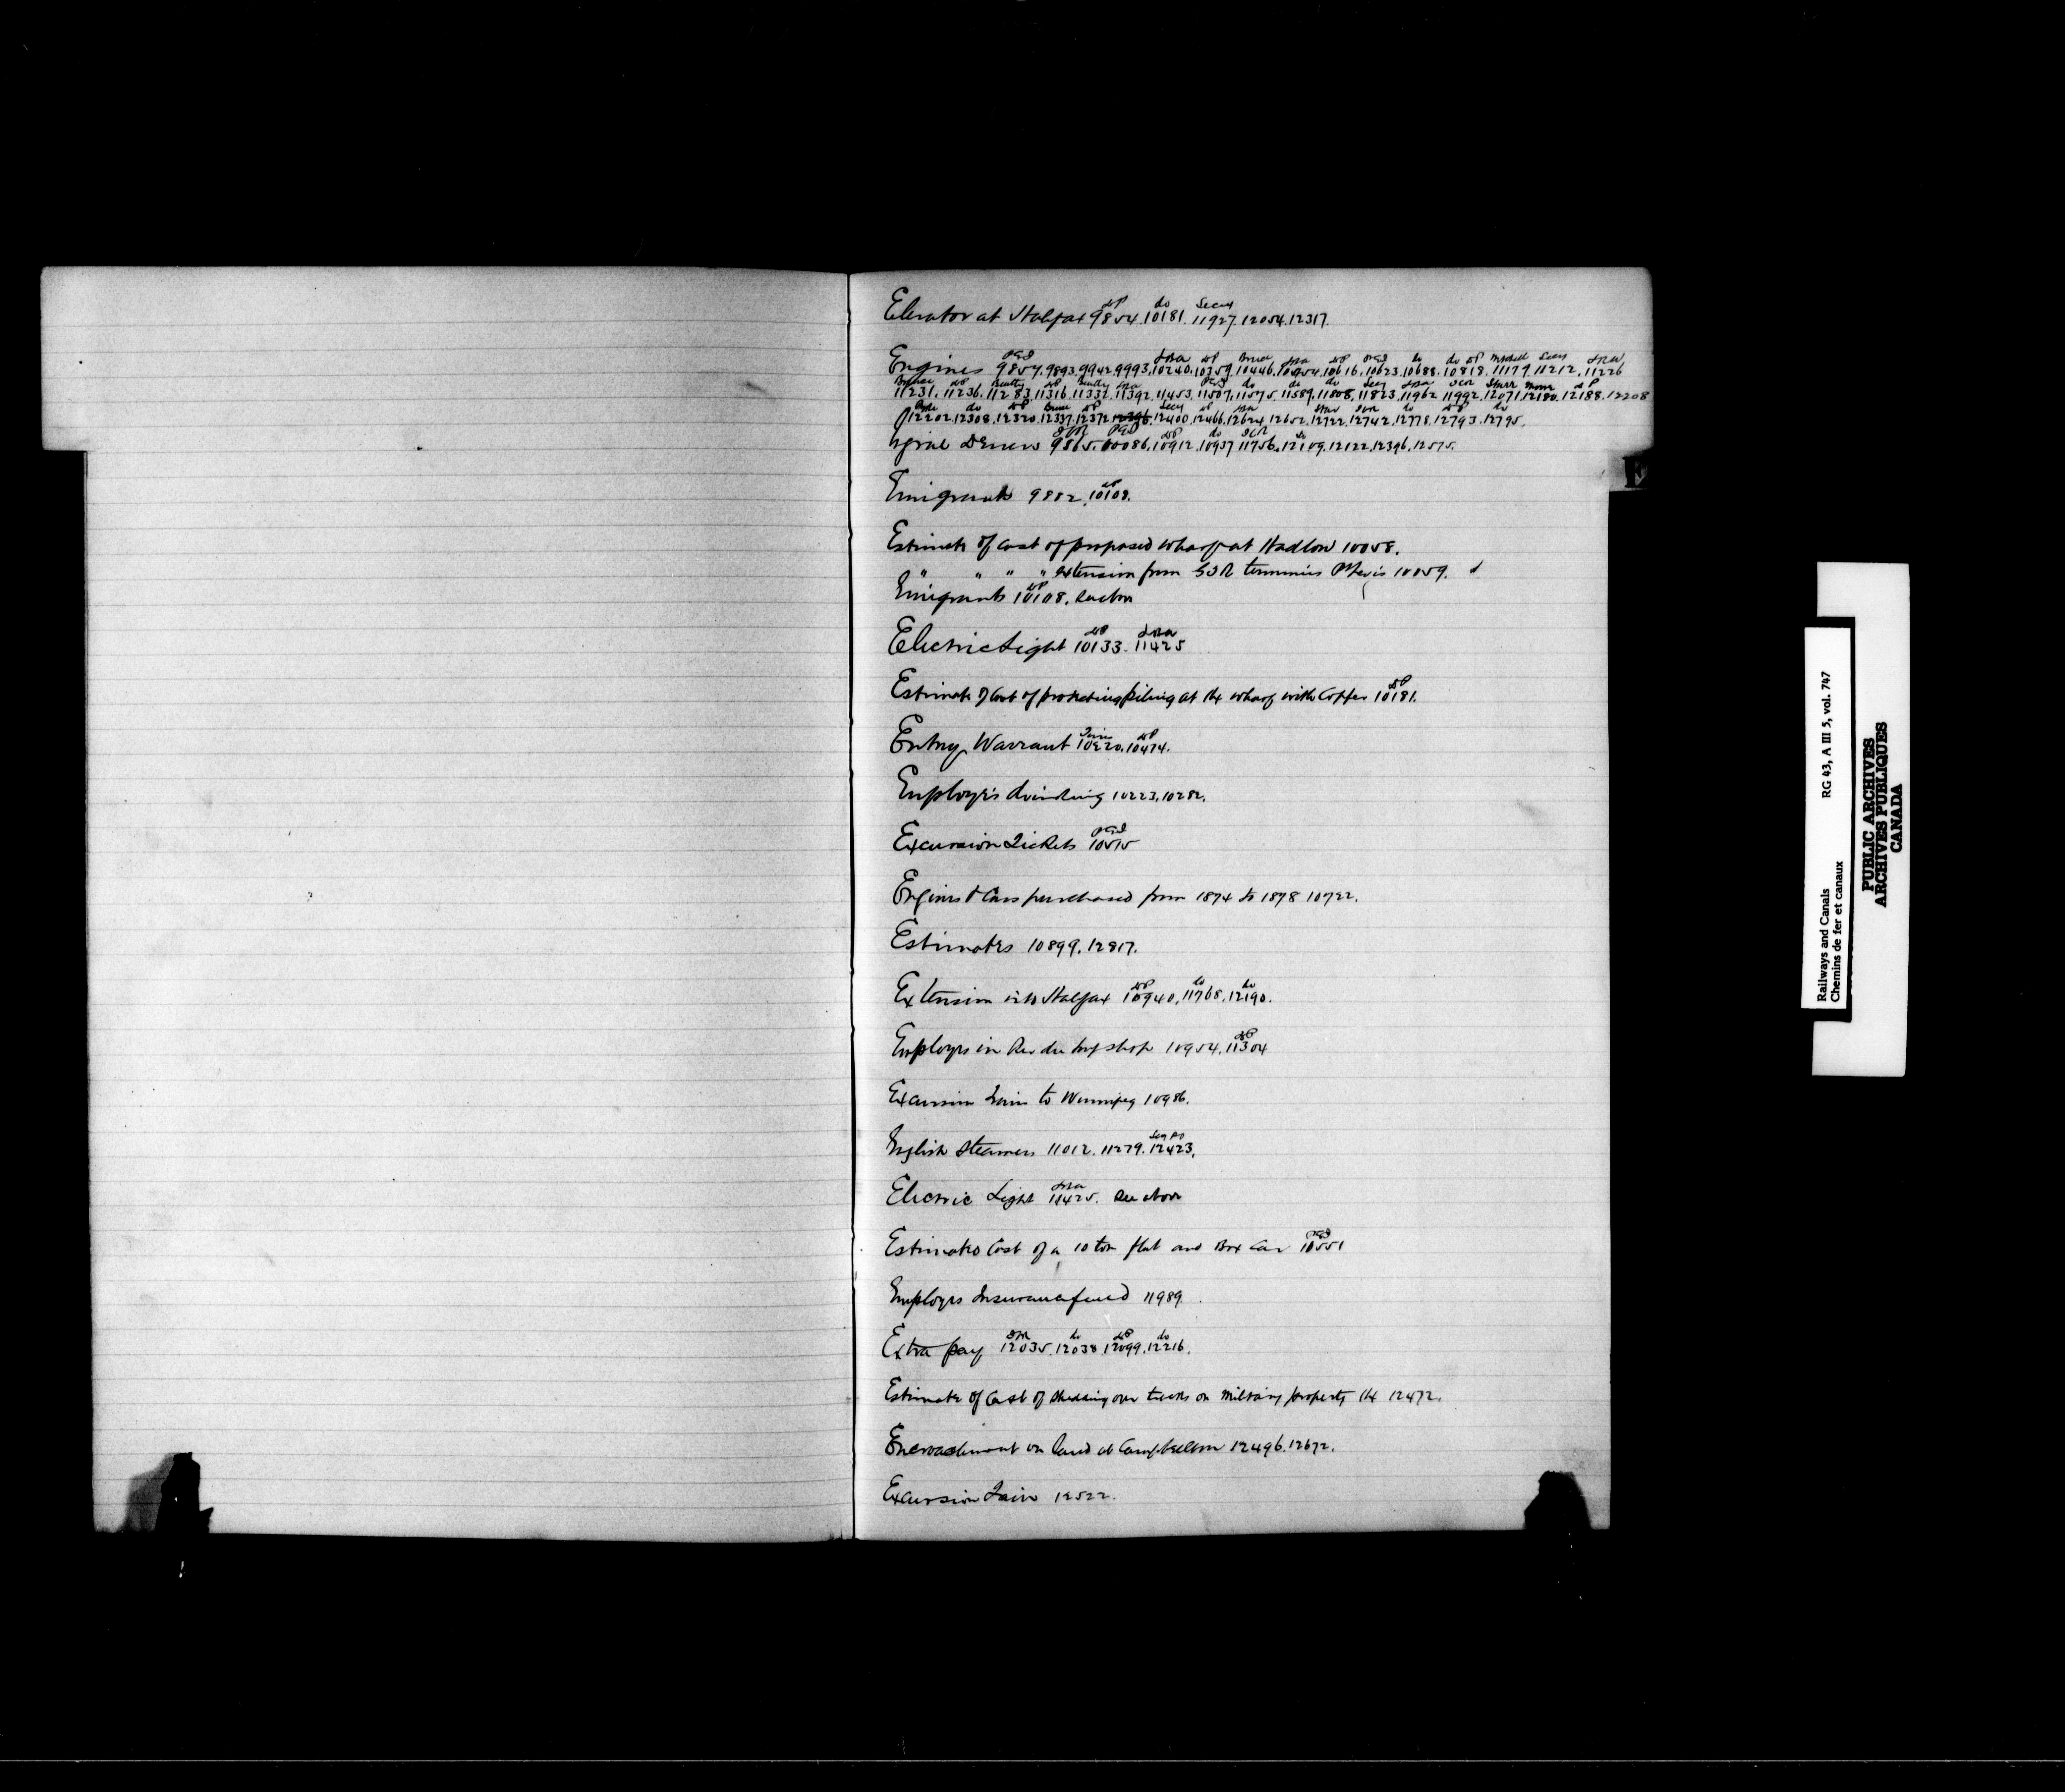 Elevator at Halifax 9854. 10181. 11927. 12054. 12317.
Engines 9857. 9893. 9942. 9993. 10240. 10359. 10446. 10454. 10616. 10623. 10688. 10818. 11179. 11212. 11226
11231. 11236. 11283. 11316. 11332. 11392. 11453. 11507. 11575. 11589. 11808. 11823. 11962. 11992. 12071. 12180. 12188. 12208
12202. 12308. 12320. 12337. 12372. 12400. 12466. 12624. 12652. 12722. 12742. 12778. 12793. 12795.
Engine Drivers 9865. 10086. 10912. 10937 11756. 12109. 12122. 12396. 12575.
Emigrants 9882. 10108.
Estimate of Cost of proposed wharf at Hadlow 10058.
" " " " extension from terminus 10059.
Emigrants 10108. See above
Electric Light 10133. 11425
Estimate of Cost of protecting piling at the wharf with Copper 10181.
Entry Warrant 10220. 10474.
Employe's drinking 10223. 10282.
Excursion Tickets 10515
Engines & Cars purchased from 1874 to 1878 10722.
Estimates 10899. 12817.
Extension into Halifax 10940. 11768. 12190.
Employes in Riv du Loup shop 10954. 11304
Excursion Train to Winnipeg 10986.
English Steamers 11012. 11279. 12423.
Electric Light 11425. See above
Estimated Cost of a 10 ton flat and Box Car 10551
Employes Insurance fund 11989.
Extra pay 12035. 12038. 12099. 12216.
Estimate of Cost of Shedding over tracks on Military property Hx 12472.
Encroachment on land at Campbellton 12496. 12672.
Excursion Train 12522.
Railways and Canals RG 43, A III 5, vol. 747
Chemins de fer et canaux
PUBLIC ARCHIVES
ARCHIVES PUBLIQUES
CANADA